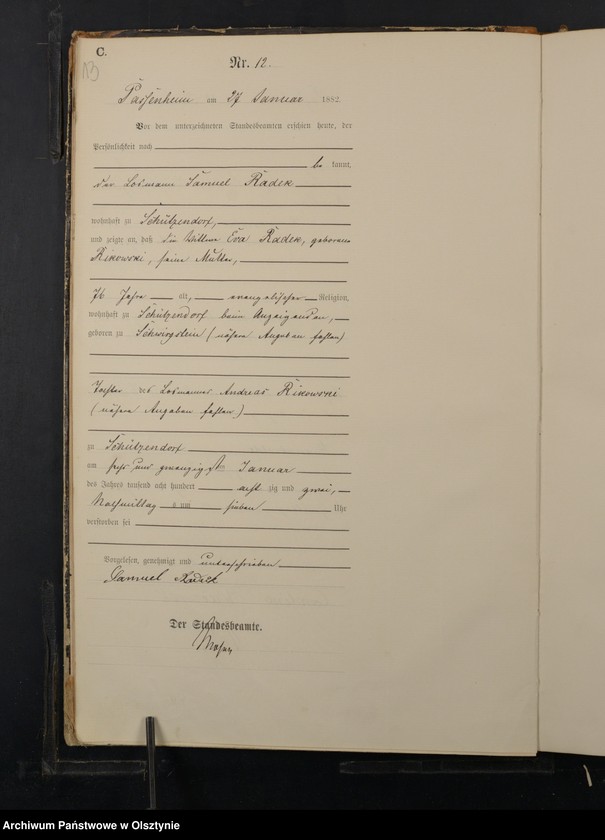 C.
13
Nr. 12.
Passenheim am 27 Januar 1882.
Vor dem unterzeichneten Standesbeamten erschien heute, der
Persönlichkeit nach
be kannt,
der Losmann Samuel Radek
wohnhaft zu Schützendorf,
und zeigte an, daß die Wittwe Eva Radek, geborene
Rikowski, seine Mutter,
76 Jahre alt, evangelischer Religion,
wohnhaft zu Schützendorf beim Anzeigenden,
geboren zu Schwirgstein (nähere Angaben fehlen)
Tochter des Losmannes Andreas Rikowski
(nähere Angaben fehlen)
zu Schützendorf
am sechs und zwanzigsten Januar
des Jahres tausend acht hundert acht zig und zwei,
Nachmittag s um sieben Uhr
verstorben sei
Vorgelesen, genehmigt und unterschrieben
Samuel Radek
Der Standesbeamte.
Archiwum Państwowe w Olsztynie